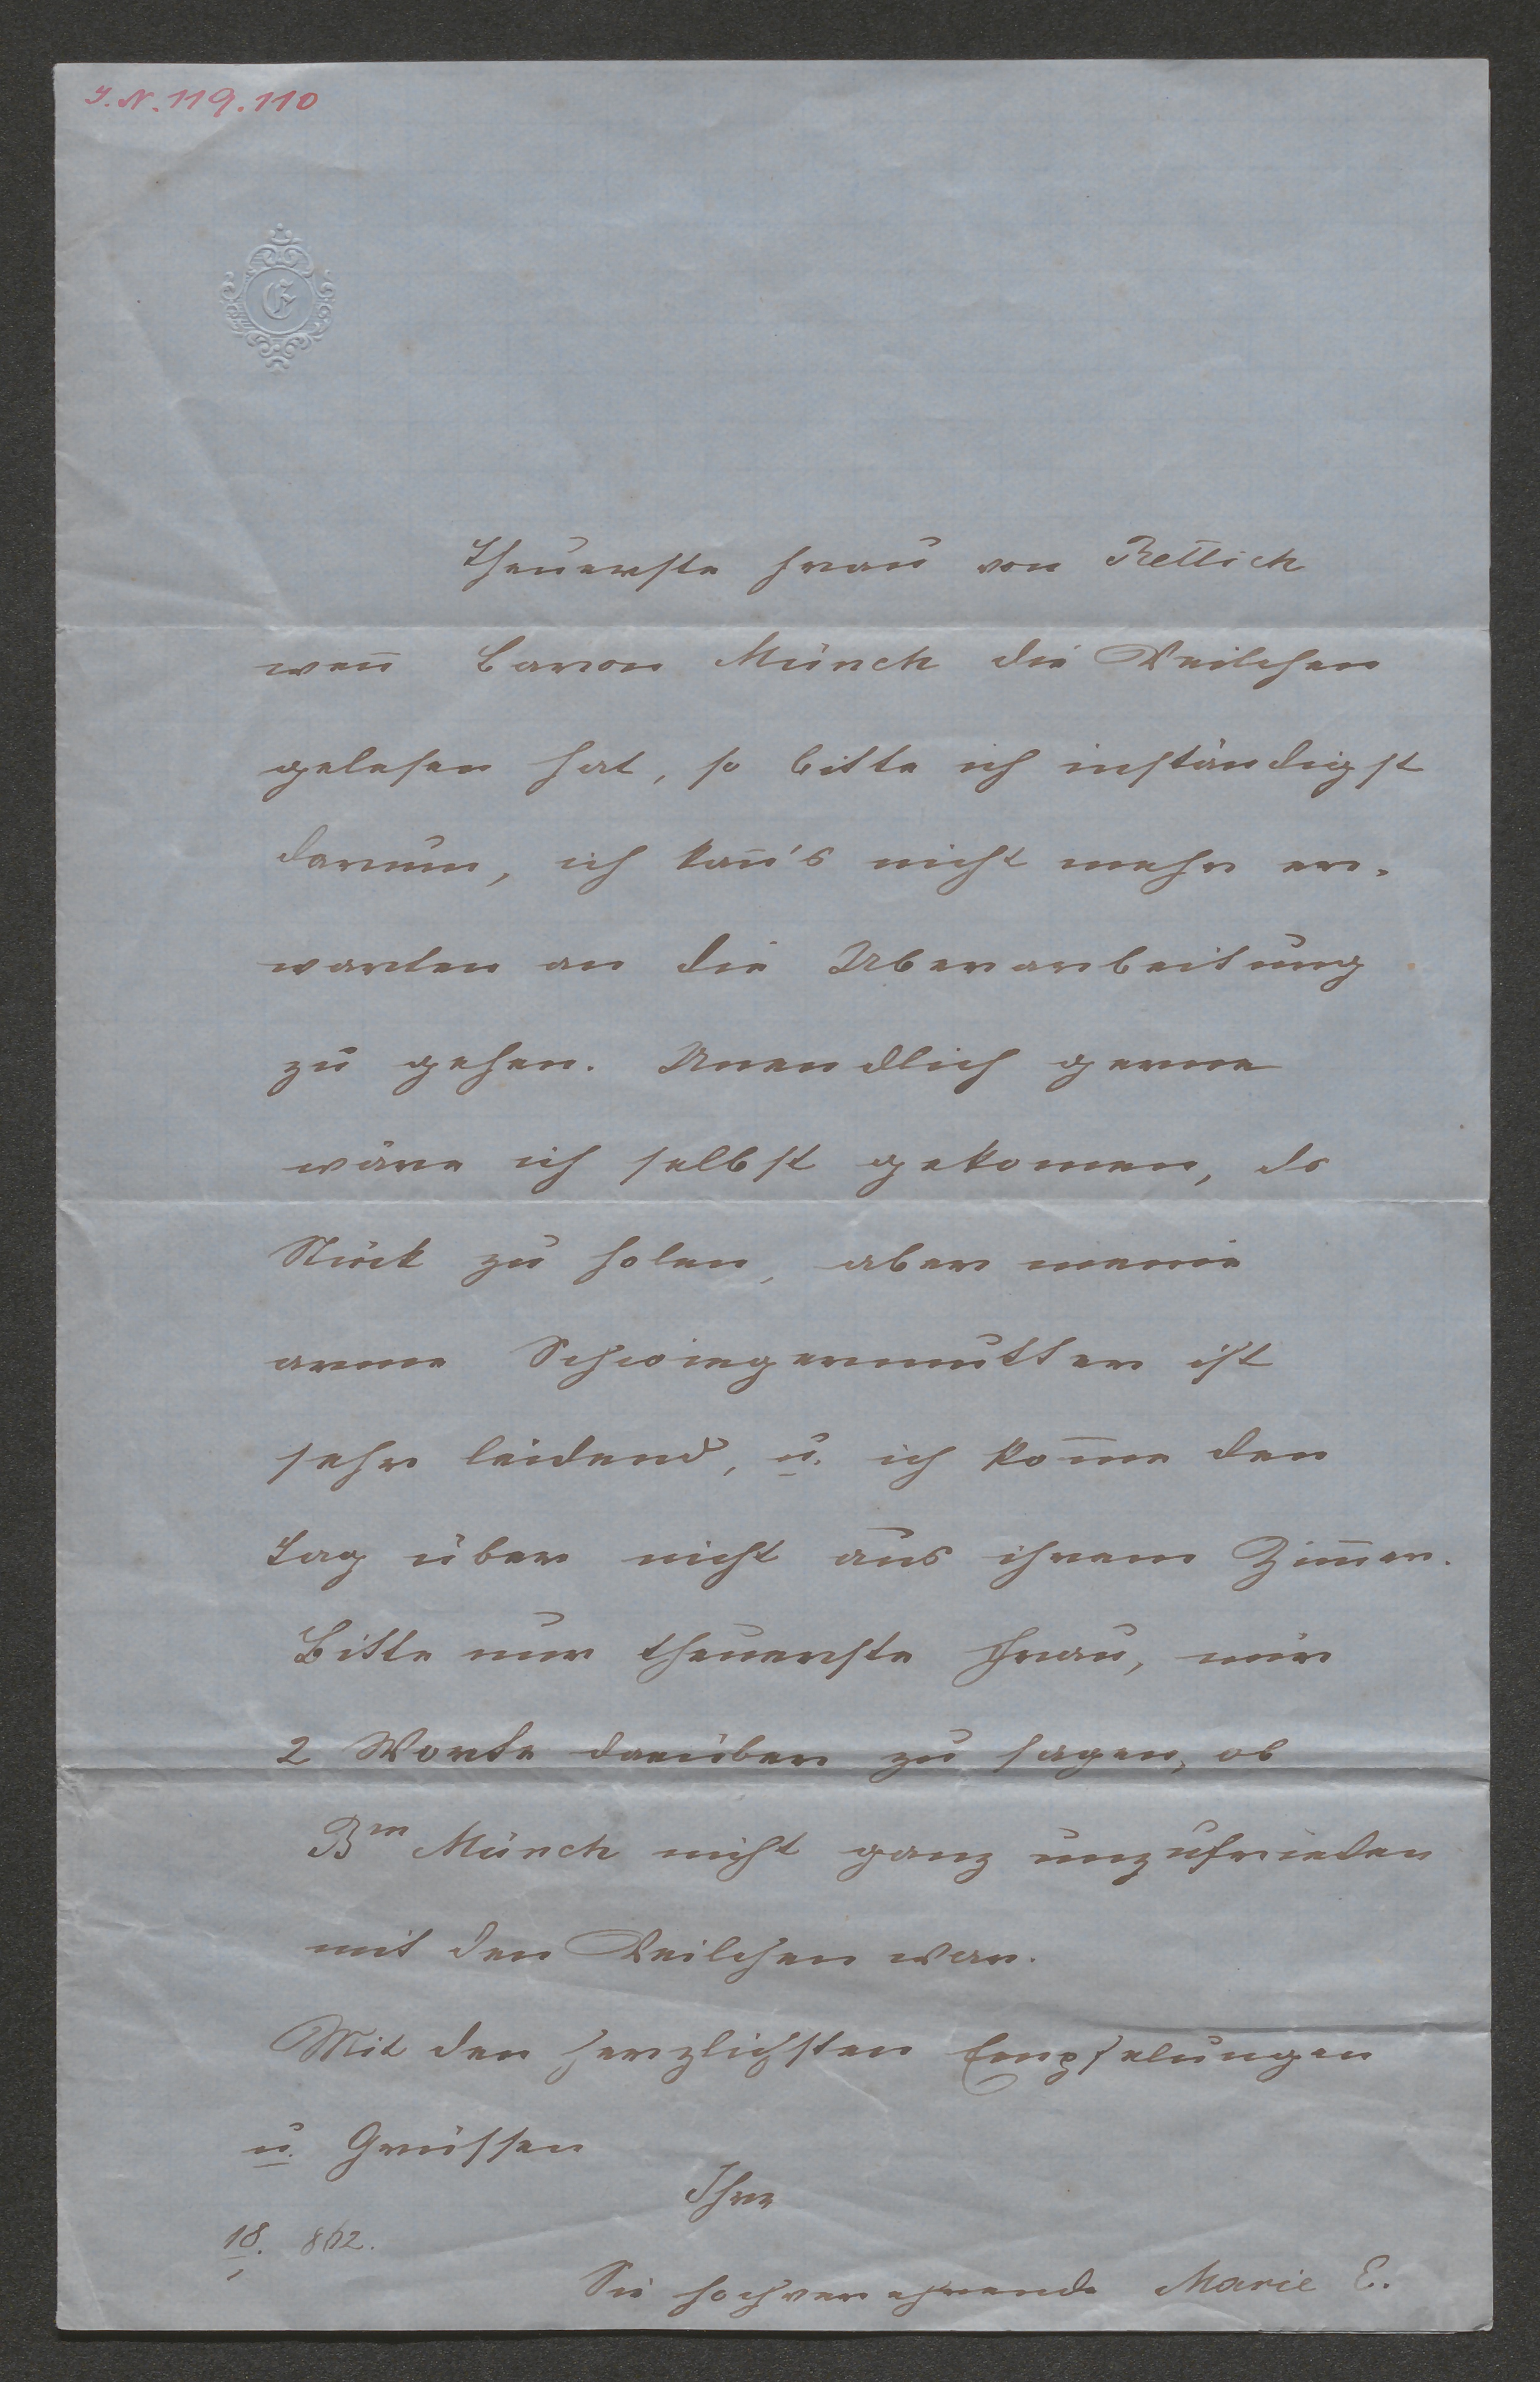 J.N. 119.110
E
Theuerste Frau von Rettich
wen̄ Baron Münch die Veilchen
gelesen hat, so bitte ich inständigst
darum, ich kan̄'s nicht mehr er-
warten an die Uberarbeitung
zu gehen. Unendlich gerne
wäre ich selbst gekomen, ds
Stück zu holen, aber meine
arme Schwiegermutter ist
sehr leidend, u. ich kom̄e den
Tag über nicht aus ihrem Zim̄er.
Bitte nur theuerste Frau, mir
2 Worte darüber zu sagen, ob
Bon Münch nicht ganz unzufrieden
mit den Veilchen war.
Mit den herzlichsten Empfelungen
u. Grüssen
Ihre
18. 862.
Sie hochverehrende Marie E.